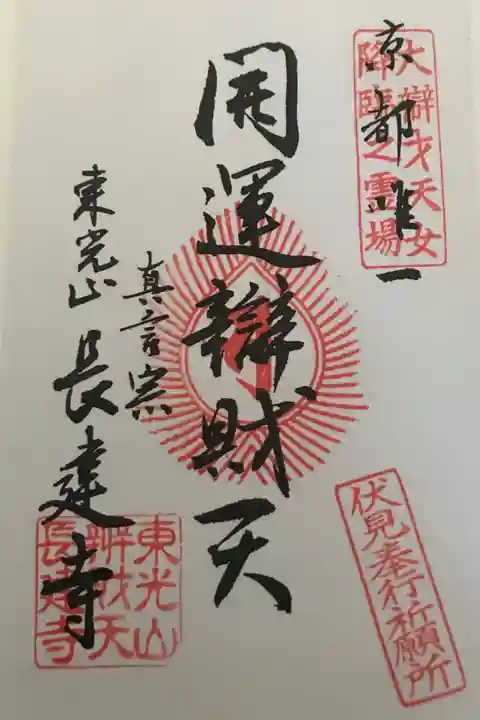 京都唯一
大辯才天女
降臨之霊場
開運辯財天
真言宗
東光山 長建寺
伏見奉行祈願所
東光山
辨財天
長建寺